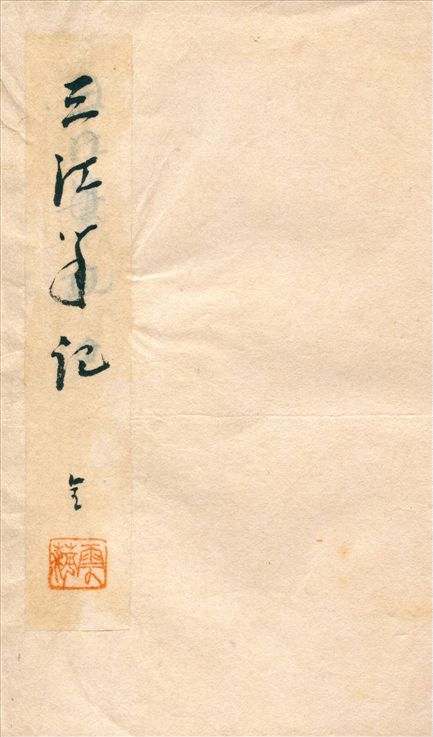 三垣筆記
全